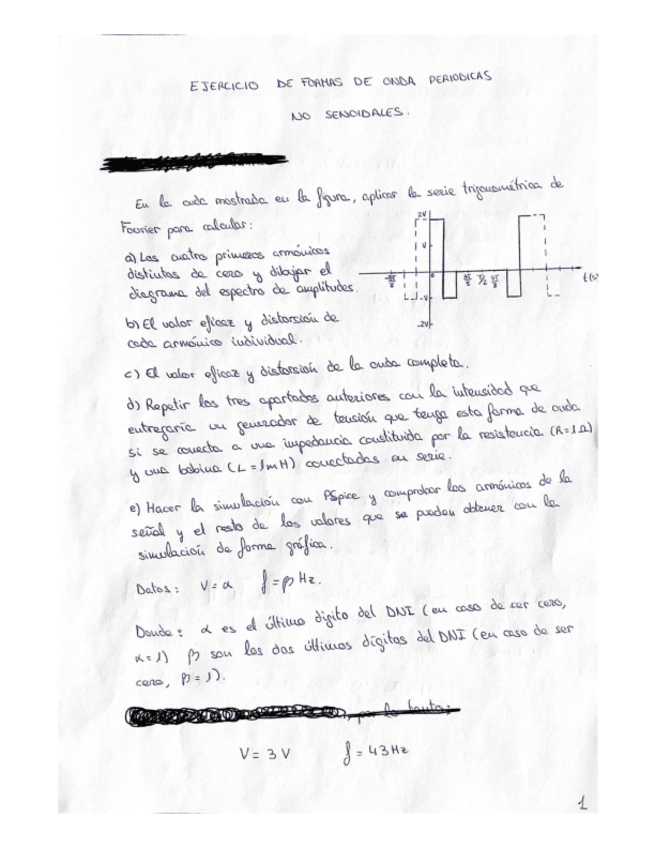 EJERCICIO DE FORMAS DE ONDA PERIODICAS
NO SENOIDALES.
En la onda mostrada en la figura, aplicar la serie trigonométrica de
Fourier para calcular:
a) Los cuatro primeros armónicos
distintos de cero y dibujar el
diagrama del espectro de amplitudes.
b) El valor eficaz y distorsión de
cada armónico individual.
2V
V
-V
-2V
0
T/2
t(s)
c) El valor eficaz y distorsión de la onda completa.
d) Repetir los tres apartados anteriores con la intensidad que
entregaría un generador de tensión que tenga esta forma de onda
si se conecta a una impedancia constituida por la resistencia (R=1Ω)
y una bobina (L=1mH) conectadas en serie.
e) Hacer la simulación con PSpice y comprobar los armónicos de la
señal y el resto de los valores que se puedan obtener con la
simulación de forma gráfica.
Datos: V=α f=β Hz.
Donde: α es el último dígito del DNI (en caso de ser cero,
α=1) β son los dos últimos dígitos del DNI (en caso de ser
cero, β=1).
por lo tanto:
V=3V f=43Hz
1